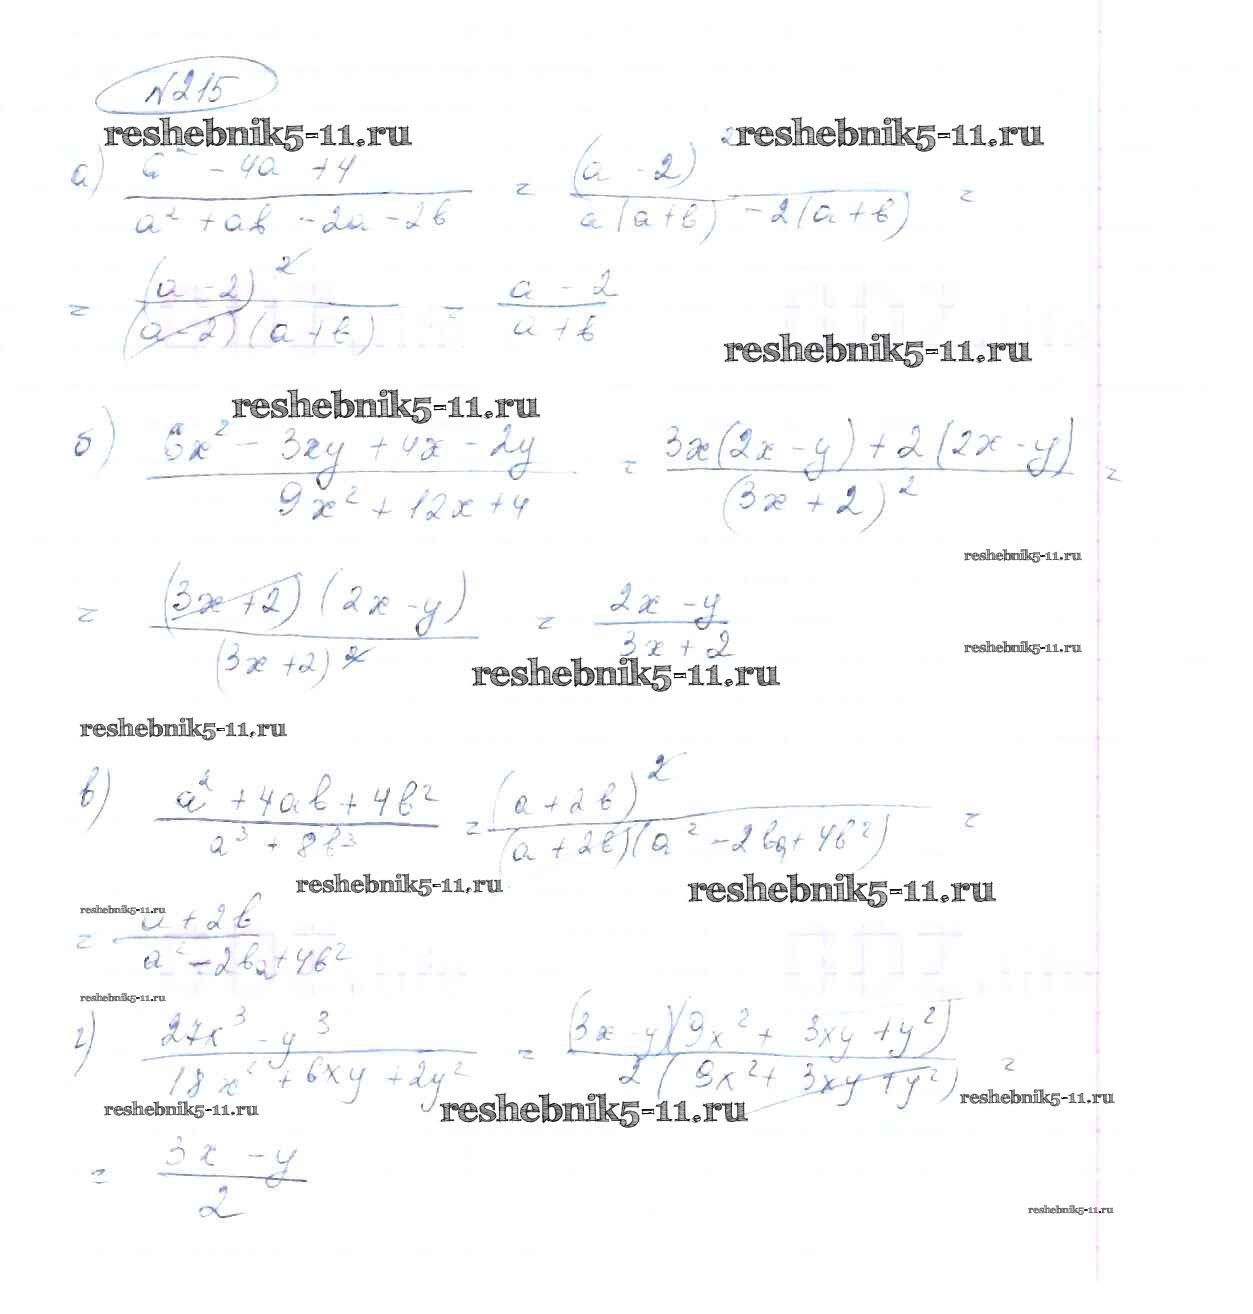 №215
reshebnik5-11.ru reshebnik5-11.ru
а) (a² - 4a + 4)/(a² + ab - 2a - 2b) = (a - 2)²/(a(a+b) - 2(a+b)) =
= (a-2)²/((a-2)(a+b)) = (a-2)/(a+b)
reshebnik5-11.ru
reshebnik5-11.ru
б) (6x² - 3xy + 4x - 2y)/(9x² + 12x + 4) = (3x(2x-y) + 2(2x-y))/(3x+2)² =
reshebnik5-11.ru
= ((3x+2)(2x-y))/(3x+2)² = (2x-y)/(3x+2)
reshebnik5-11.ru
reshebnik5-11.ru
reshebnik5-11.ru
в) (a² + 4ab + 4b²)/(a³ + 8b³) = (a+2b)²/((a+2b)(a² - 2ba + 4b²)) =
reshebnik5-11.ru reshebnik5-11.ru
reshebnik5-11.ru
= (a+2b)/(a² - 2ba + 4b²)
reshebnik5-11.ru
г) (27x³ - y³)/(18x² + 6xy + 2y²) = ((3x-y)(9x² + 3xy + y²))/(2(9x² + 3xy + y²)) =
reshebnik5-11.ru reshebnik5-11.ru reshebnik5-11.ru
= (3x - y)/2
reshebnik5-11.ru